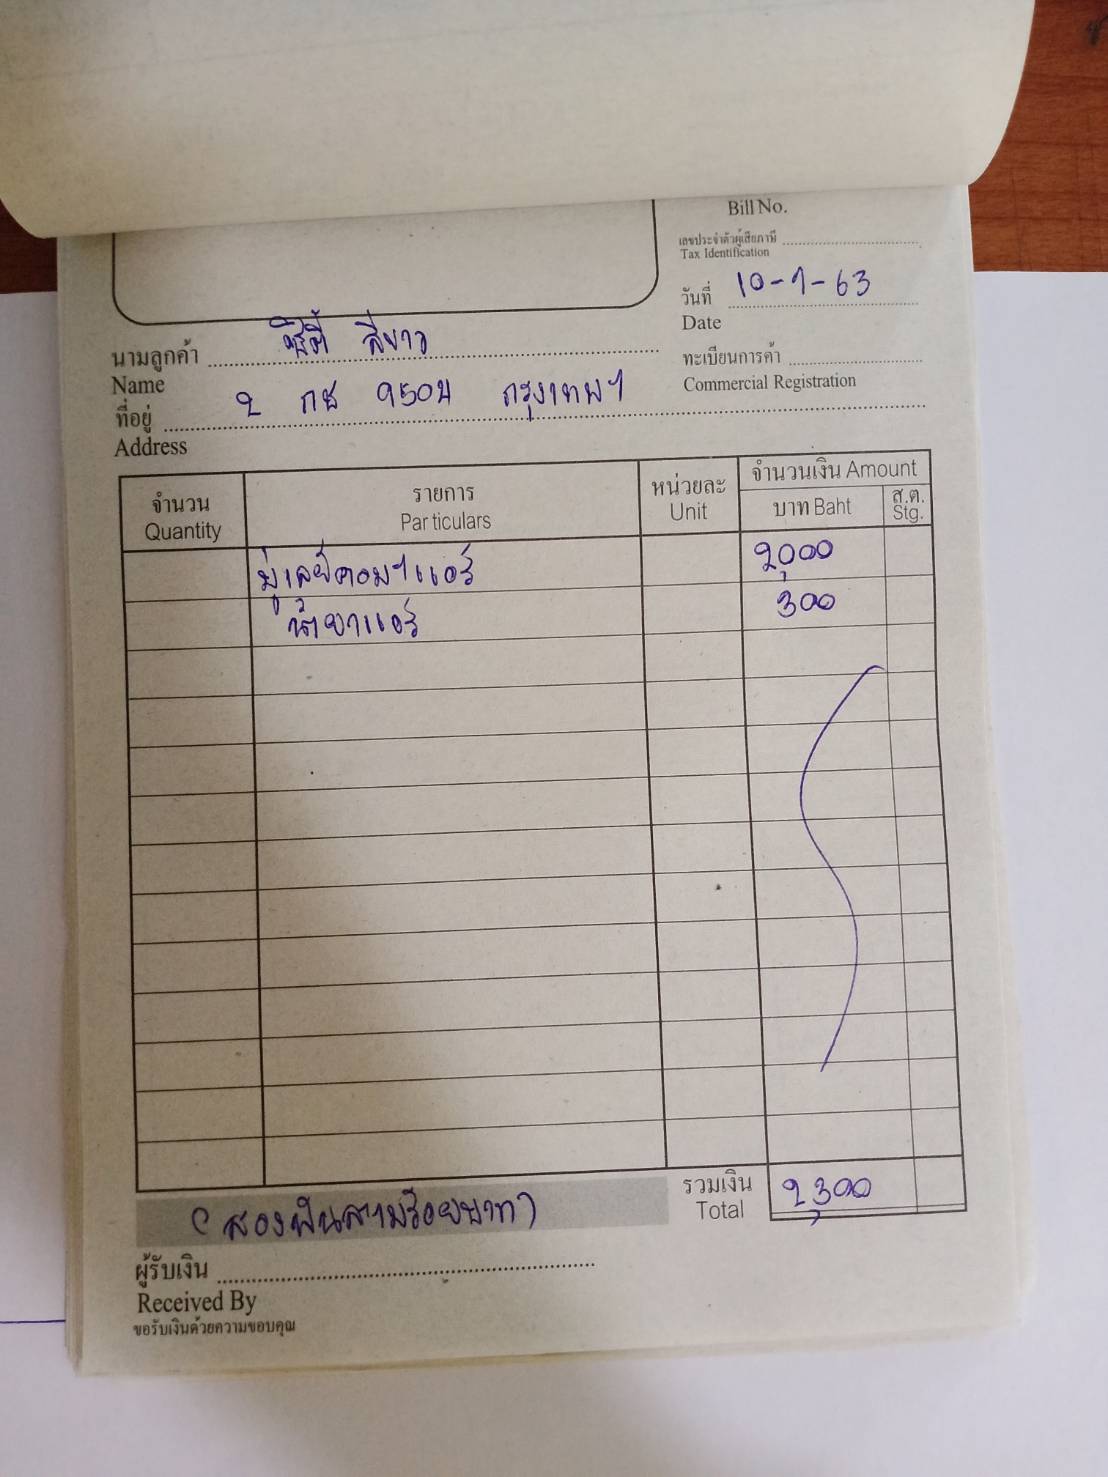 Bill No.
เลขประจำตัวผู้เสียภาษี
Tax Identification
วันที่ 10-9-63
Date
นามลูกค้า ซิตี้ สีขาว
Name
ทะเบียนการค้า
Commercial Registration
ที่อยู่ 2 กฮ 9504 กรุงเทพฯ
Address
จำนวน รายการ หน่วยละ จำนวนเงิน Amount
Quantity Particulars Unit บาท Baht ส.ต. Stg.
มู่เลย์คอมฯแอร์ 2,000
น้ำยาแอร์ 300
รวมเงิน 2,300
Total
(สองพันสามร้อยบาท)
ผู้รับเงิน
Received By
ขอรับเงินด้วยความขอบคุณ